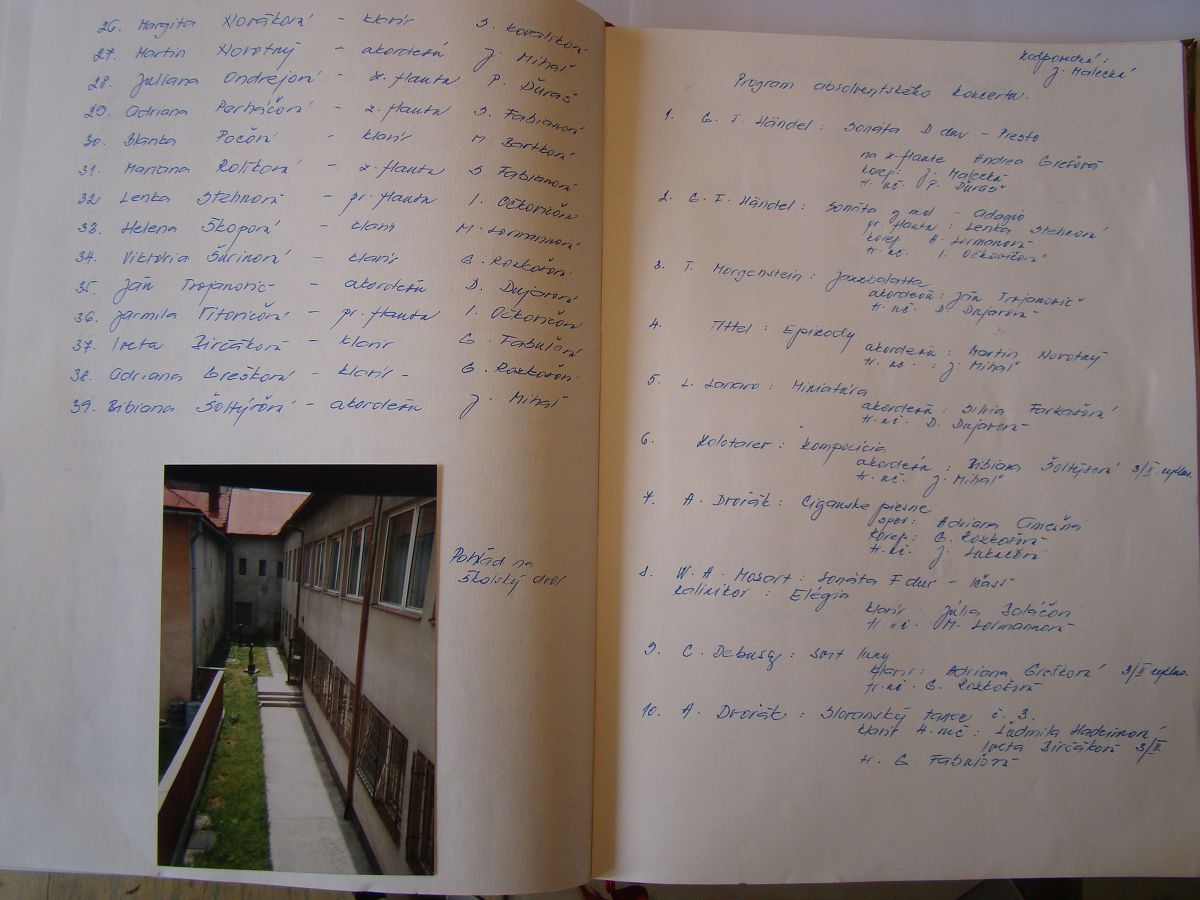 26. Margita Nováková - klavír S. Kovalíková
27. Martin Novotný - akordeón J. Mihaľ
28. Juliana Ondrejová - z. flauta P. Ďuraš
29. Adriana Perháčová - z. flauta S. Fabianová
30. Blanka Počová - klavír M. Bartková
31. Mariana Rolíková - z. flauta S Fabianová
32. Lenka Stehnová - pr. flauta I. Očkovičová
33. Helena Škopová - klavír M. Lormannová
34. Viktória Šurinová - klavír G. Rozkošová
35. Ján Trojanovič - akordeón D. Dujavová
36. Jarmila Titovičová - pr. flauta I. Očkovičová
37. Iveta Birčáková - klavír G. Fabušová
38. Adriana Grešková - klavír - G. Rozkošová
39. Bibiana Šoltýsová - akordeón J. Mihaľ
Pohľad na
školský dvor
Zodpovedná:
J. Malecká
Program absolventského koncertu.
1. G. F. Händel: Sonáta D dur - Presto
na z. flaute Andrea Grešová
korep: J. Malecká
tr. uč. P. Ďuraš
2. G. F. Händel: Sonáta g mol - adagio
pr. flauta: Lenka Stehnová
korep. A. Lormanová
tr. uč. I. Očkovičová
3. T. Morgenstein: Jazzbalatta
akordeón: Ján Trojanovič
tr. uč. D. Dujavová
4. Tittel: Epizódy
akordeón: Martin Novotný
tr. uč.: J. Mihaľ
5. L. Lanaro: Miniatúra
akordeón: Silvia Farkašová
tr. uč. D. Dujavová
6. Zolotarev: Kompozícia
akordeón: Bibiana Šoltýsová 3/II. cyklus.
tr. uč. J. Mihaľ
7. A. Dvořák: Cigánske piesne
spev: Adriana
korep: G. Rozkošová
tr. uč. J.
8. W. A. Mozart: Sonáta F dur - I časť
Kalinikov: Elégia
klavír: Júlia
tr. uč. M. Lormannová
9. C. Debussy: Svit luny
klavír: Adriana Grešková 3/II cyklus.
tr. uč. G. Rozkošová
10. A. Dvořák: Slovanský tanec č. 3.
klavír 4. ruč: Ľudmila
Iveta Birčáková 3/II.
tr. G. Fabušová